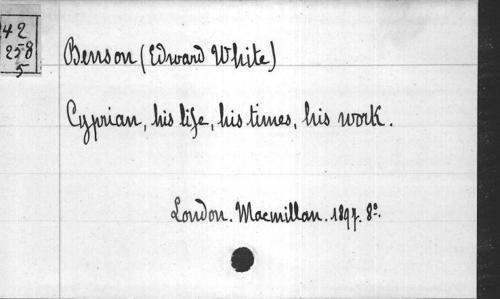 42
258
5
Benson (Edward White)
Cyprian, his life, his times, his work.
London. Macmillan. 1897. 8°.